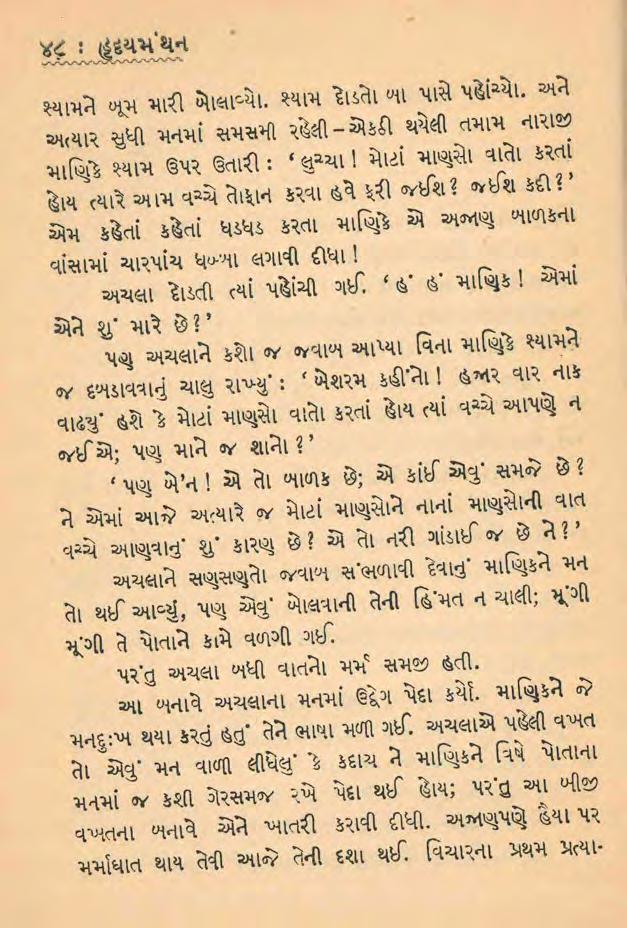 ૪૮ : હૃદયમંથન
શ્યામને બૂમ મારી બોલાવ્યો. શ્યામ દોડતો બા પાસે પહોંચ્યો. અને
અત્યાર સુધી મનમાં સમસમી રહેલી – એકઠી થયેલી તમામ નારાજી
માણિકે શ્યામ ઉપર ઉતારી : ‘ લુચ્ચા ! મોટાં માણસો વાતો કરતાં
હોય ત્યારે આમ વચ્ચે તોફાન કરવા હવે ફરી જઈશ? જઈશ કદી?’
એમ કહેતાં કહેતાં ધડધડ કરતા માણિકે એ અજાણ બાળકના
વાંસામાં ચારપાંચ ધબ્બા લગાવી દીધા !
અચલા દોડતી ત્યાં પહોંચી ગઈ. ‘ હં હં માણિક ! એમાં
એને શું મારે છે?’
પણ અચલાને કશો જ જવાબ આપ્યા વિના માણિકે શ્યામને
જ દબડાવવાનું ચાલુ રાખ્યું : ‘ બેશરમ કહીંનો ! હજાર વાર નાક
વાઢ્યું હશે કે મોટાં માણસો વાતો કરતાં હોય ત્યાં વચ્ચે આપણે ન
જઈએ; પણ માને જ શાનો ?’
‘ પણ બે’ન ! એ તો બાળક છે; એ કાંઈ એવું સમજે છે?
ને એમાં આજે અત્યારે જ મોટાં માણસોને નાનાં માણસોની વાત
વચ્ચે આણવાનું શું કારણ છે? એ તો નરી ગાંડાઈ જ છે ને?’
અચલાને સણસણતો જવાબ સંભળાવી દેવાનું માણિકને મન
તો થઈ આવ્યું, પણ એવું બોલવાની તેની હિંમત ન ચાલી; મૂંગી
મૂંગી તે પોતાને કામે વળગી ગઈ.
પરંતુ અચલા બધી વાતનો મર્મ સમજી હતી.
આ બનાવે અચલાના મનમાં ઉદ્વેગ પેદા કર્યો. માણિકને જે
મનદુઃખ થયા કરતું હતું તેને ભાષા મળી ગઈ. અચલાએ પહેલી વખત
તો એવું મન વાળી લીધેલું કે કદાચ ને માણિકને વિષે પોતાના
મનમાં જ કશી ગેરસમજ રખે પેદા થઈ હોય; પરંતુ આ બીજી
વખતના બનાવે એને ખાતરી કરાવી દીધી. અજાણપણે હૈયા પર
મર્માઘાત થાય તેવી આજે તેની દશા થઈ. વિચારના પ્રથમ પ્રત્યા-